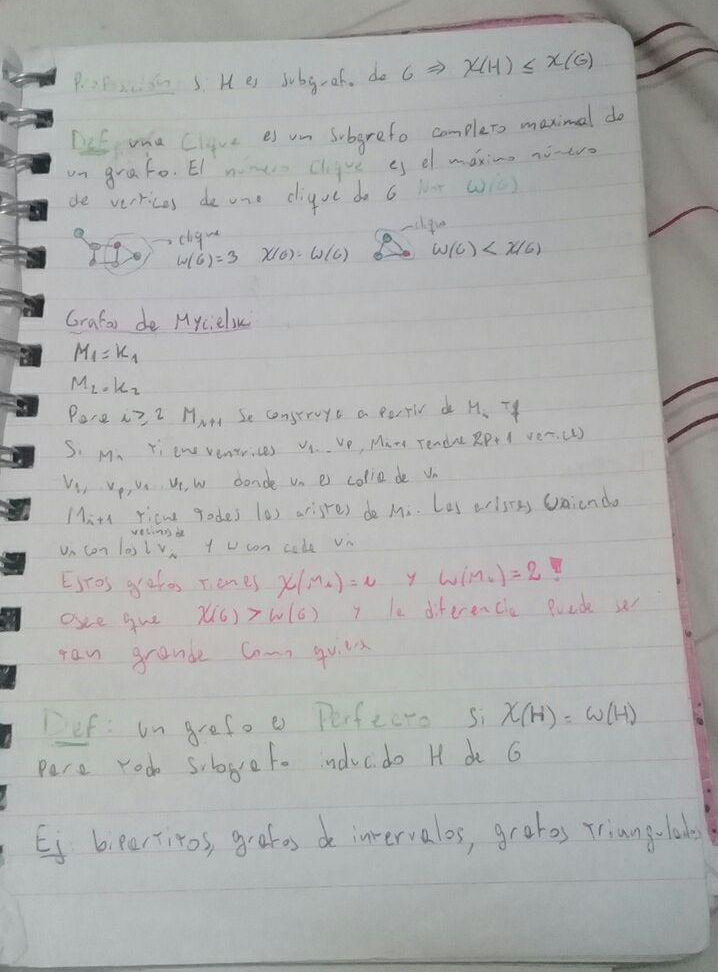 Proposición: Si H es subgrafo de G ⇒ χ(H) ≤ χ(G)
Def: una Clique es un subgrafo completo maximal de
un grafo. El número clique es el máximo número
de vertices de una clique de G Not ω(G)
clique
ω(G)=3 χ(G)=ω(G)
clique
ω(G) < χ(G)
Grafos de Mycielski
M1=K1
M2=K2
Para i≥2 Mi+1 se construye a partir de Mi
Si Mi tiene vertices v1.. vp, Mi+1 tendra 2p+1 vertices
V1,.. vp, u1.. w donde ui es copia de vi
Mi+1 tiene todas las aristas de Mi. Las aristas uniendo
vecinos de
ui con los vi y w con cada ui
Estos grafos tienes χ(Mi)=i y ω(Mi)=2!
Osea que χ(G)>ω(G) y la diferencia puede ser
tan grande como quiera
Def: un grafo es Perfecto si χ(H) = ω(H)
para todo subgrafo inducido H de G
Ej: bipartitos, grafos de intervalos, grafos triangulados